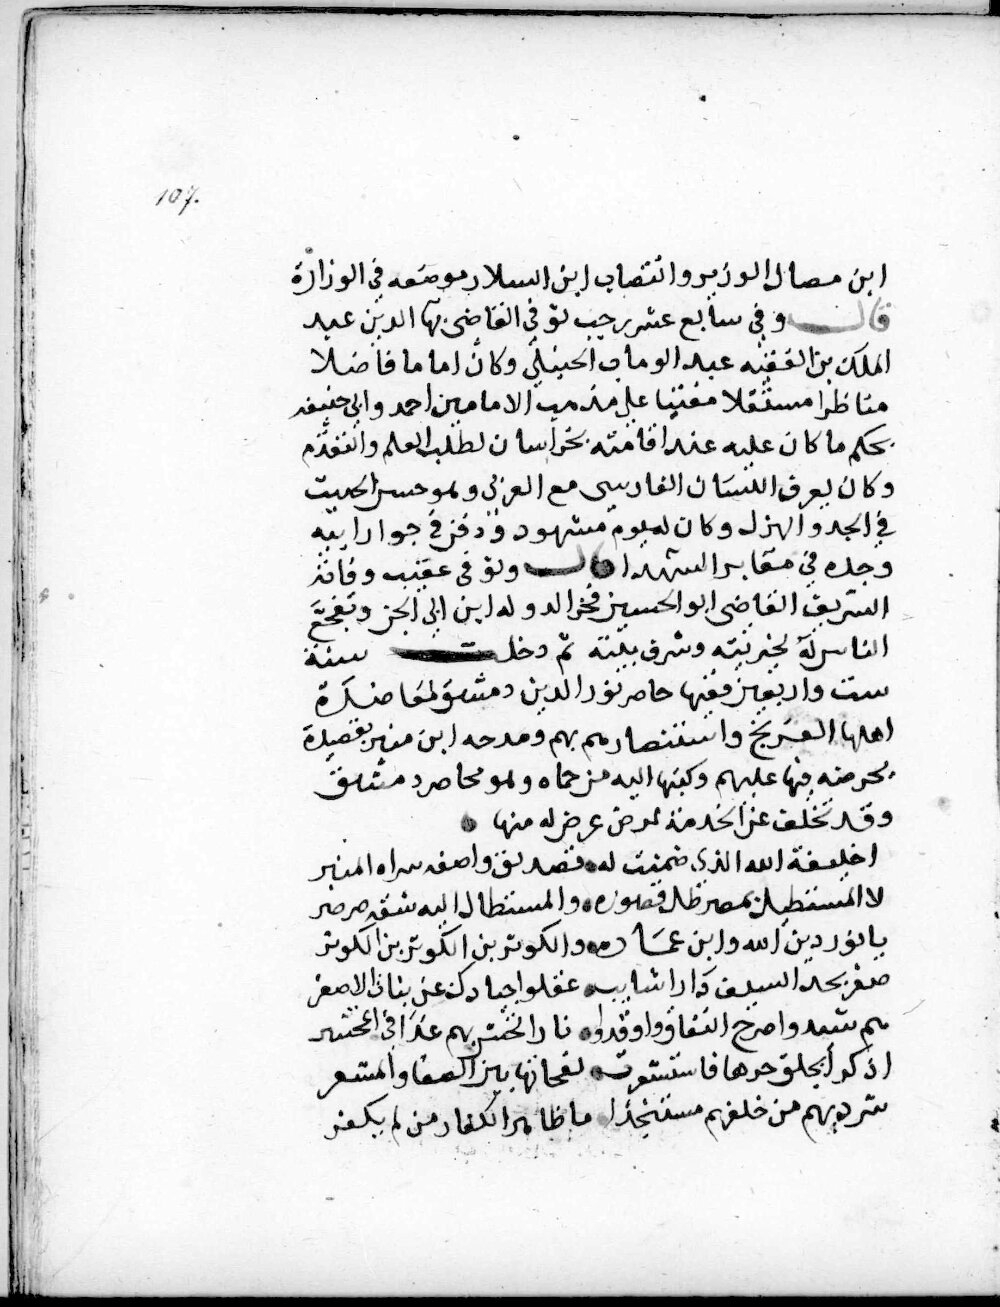 107.
ابن مصال الوزير وانتصاب ابن السلار موضعه في الوزارة
قال وفي سابع عشر رجب توفي القاضي بها الدين عبد
الملك بن الفقيه عبد الوهاب الحنبلي وكان اماما فاضلا
مناظرا مستقلا مفتيا على مذهب الامامين احمد وابي حنيفه
بحكم ما كان عليه عند اقامته بخراسان لطلب العلم والتقدم
وكان يعرف اللسان الفارسي مع العربي وهو حسن الحديث
في الجد والهزل وكان له يوم مشهود ودفن في جوار ابيه
وجده في مقابر الشهدا قال وتوفي عقيب وفاته
الشريف القاضي ابو الحسين فخر الدوله ابن ابي الجن وتفجع
الناس له لخيريته وشرف بيته ثم دخلت سنة
ست واربعين ففيها حاصر نور الدين دمشق لمعاضدة
اهلها الفرنج واستنصارهم بهم ومدحه ابن منير بقصيدة
يحرضه فيها عليهم وكتبها اليه من حماه وهو محاصر دمشق
وقد تخلف عن الخدمة لمرض عرض له منها
اخليفة الله الذي ضمنت له تصديق واصفه سراه المنبر
لا المستطيل بمصر ظل قصوره والمستطال اليه شقة صرصر
يا نور دين الله وابن عماده والكوثر بن الكوثر بن الكوثر
صفر بحد السيف دار اشايب عقلوا جيادك عن بنات الاصفر
هم شيدوا صرح النفاق واوقدوا نارا تحش بهم غدا في المحشر
اذكوا بجلق حرها فاستشعرت لفحاتها بين الصفا والمشعر
شرد بهم من خلفهم مستنجدا ما ظاهر الكفار من لم يكفر